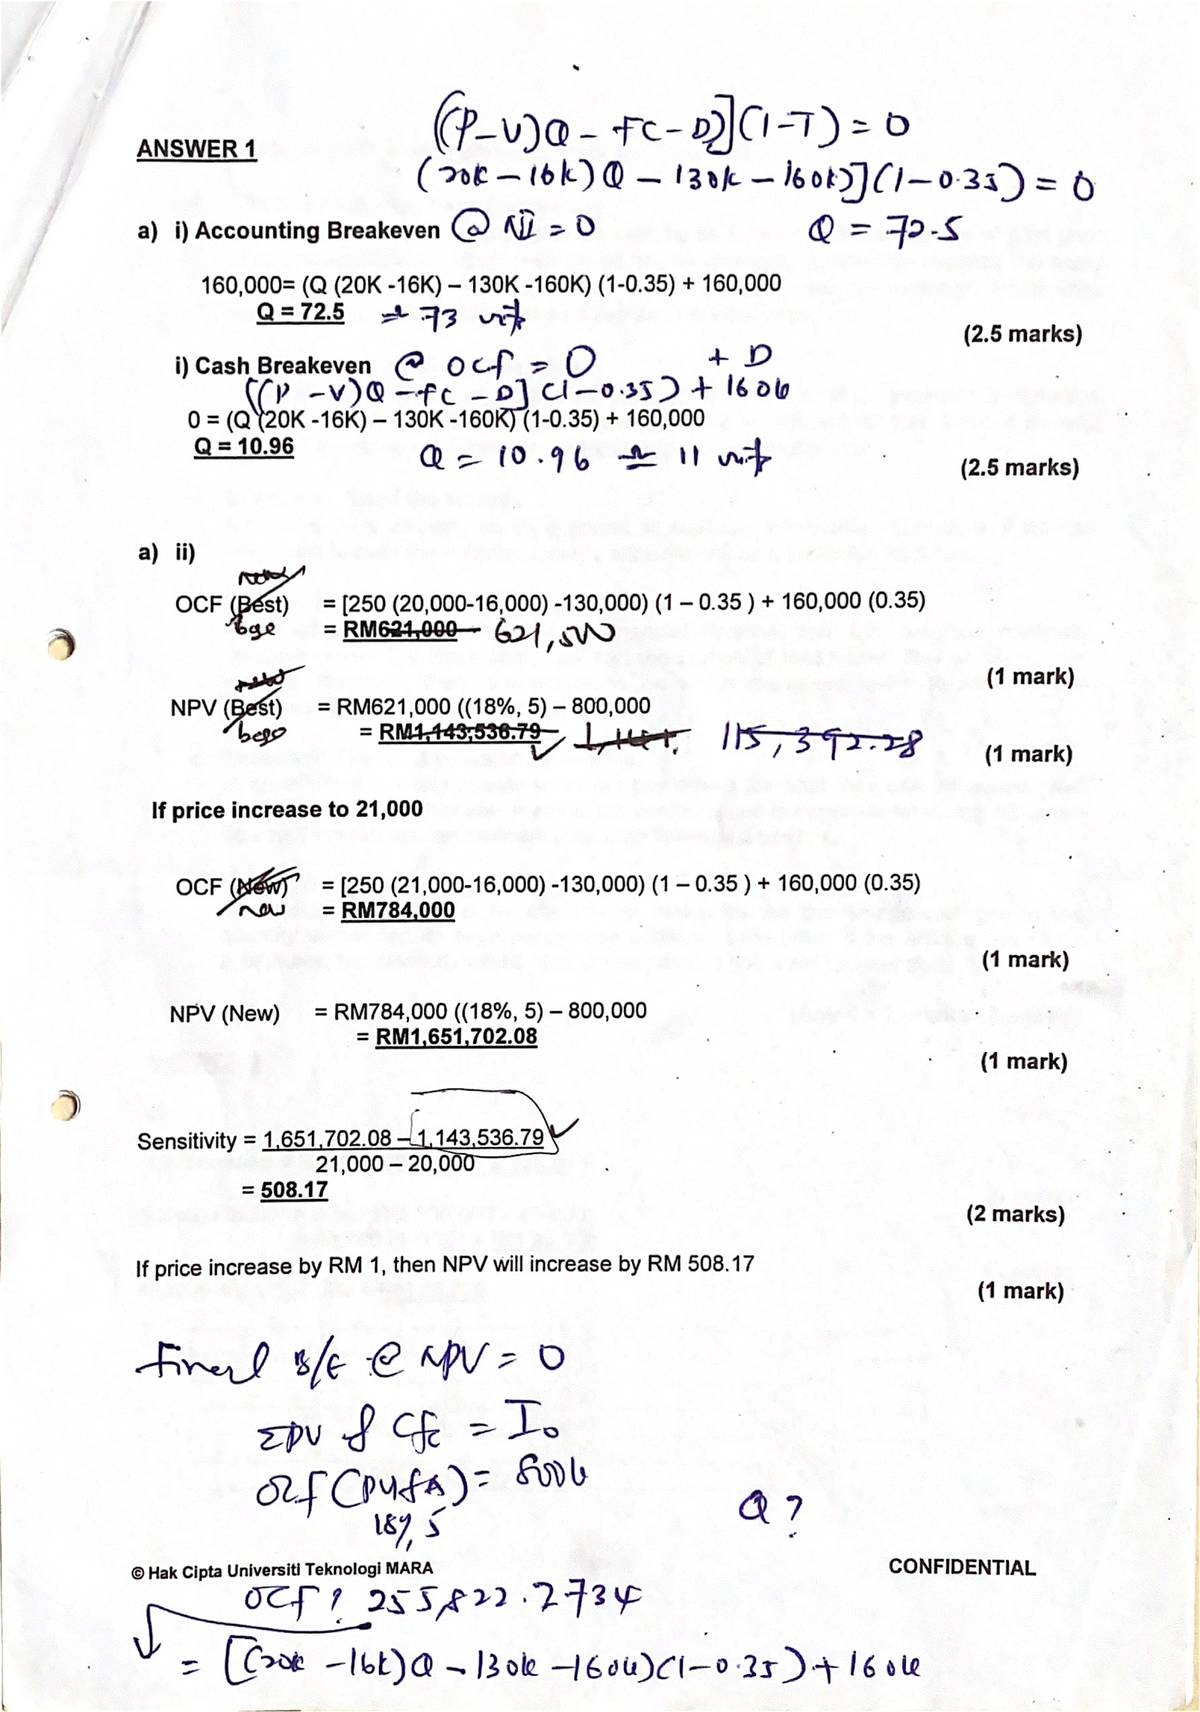 ((P-V)Q - FC - D)](1-T) = 0
ANSWER 1
(20k - 16k) Q - 130k - 160k)](1-0.35) = 0
a) i) Accounting Breakeven @ NI = 0
Q = 72.5
160,000= (Q (20K -16K) – 130K -160K) (1-0.35) + 160,000
Q = 72.5 ≃ 73 unit
(2.5 marks)
i) Cash Breakeven @ OCF = 0 + D
[(P - V)Q - FC - D](1-0.35) + 160k
0 = (Q (20K -16K) – 130K -160K) (1-0.35) + 160,000
Q = 10.96
Q = 10.96 ≃ 11 unit
(2.5 marks)
a) ii)
OCF (Best) = [250 (20,000-16,000) -130,000) (1 – 0.35 ) + 160,000 (0.35)
= RM621,000 621,500
(1 mark)
NPV (Best) = RM621,000 ((18%, 5) – 800,000
= RM1,143,536.79 115,392.28
(1 mark)
If price increase to 21,000
OCF (New) = [250 (21,000-16,000) -130,000) (1 – 0.35 ) + 160,000 (0.35)
new = RM784,000
(1 mark)
NPV (New) = RM784,000 ((18%, 5) – 800,000
= RM1,651,702.08
(1 mark)
Sensitivity = 1,651,702.08 – 1,143,536.79
21,000 – 20,000
= 508.17
(2 marks)
If price increase by RM 1, then NPV will increase by RM 508.17
(1 mark)
B/E @ NPV = 0
ΣPV of CFs = I₀
OCF (PVIFA) = 800k
18%, 5
Q ?
© Hak Cipta Universiti Teknologi MARA
CONFIDENTIAL
OCF? 255,822.2734
= [(20k - 16k)Q - 130k - 160k)(1-0.35) + 160k